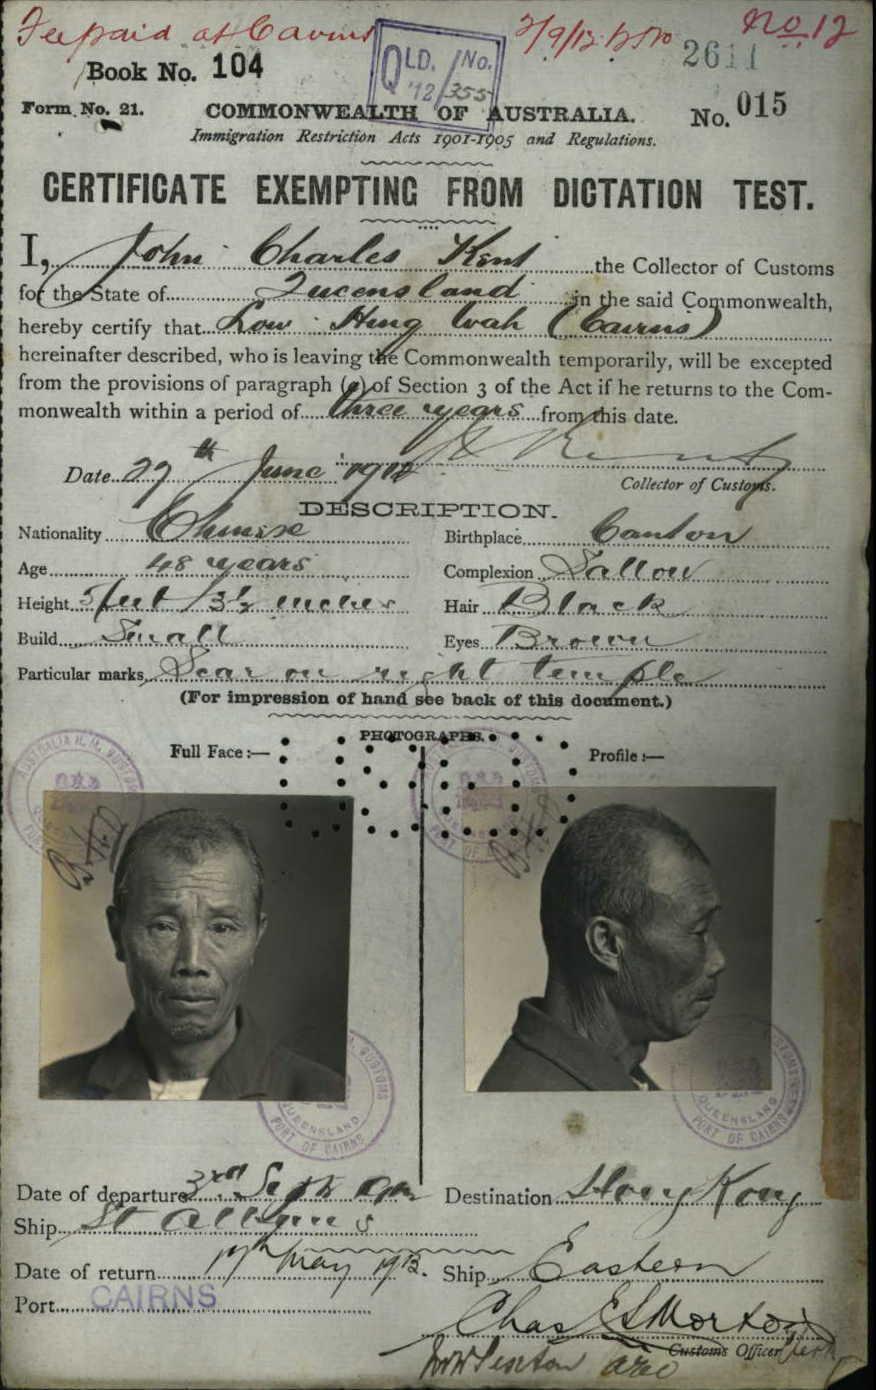 Fee paid at Cairns
2/9/12
No 12
2611
Book No. 104
QLD. No.
'12/355
Form No. 21.
COMMONWEALTH OF AUSTRALIA.
No. 015
Immigration Restriction Acts 1901-1905 and Regulations.
CERTIFICATE EXEMPTING FROM DICTATION TEST.
I, John Charles Kent the Collector of Customs
for the State of Queensland in the said Commonwealth,
hereby certify that Low Hing Wah (Cairns)
hereinafter described, who is leaving the Commonwealth temporarily, will be excepted
from the provisions of paragraph (a) of Section 3 of the Act if he returns to the Com-
monwealth within a period of three years from this date.
Date 27th June 1912
Collector of Customs.
DESCRIPTION.
Nationality Chinese Birthplace Canton
Age 48 years Complexion Sallow
Height 5 feet 3½ inches Hair Black
Build Small Eyes Brown
Particular marks Scar on right temple
(For impression of hand see back of this document.)
PHOTOGRAPHS.
Full Face:—
Profile:—
AUSTRALIA H.M. CUSTOMS
QUEENSLAND
PORT OF CAIRNS
QUEENSLAND
PORT OF CAIRNS
Date of departure 3rd Sept 1912 Destination Hong Kong
Ship St Albans
Date of return 17th May 1913. Ship Eastern
Port CAIRNS
Chas E S Morton
Customs Officer Clerk